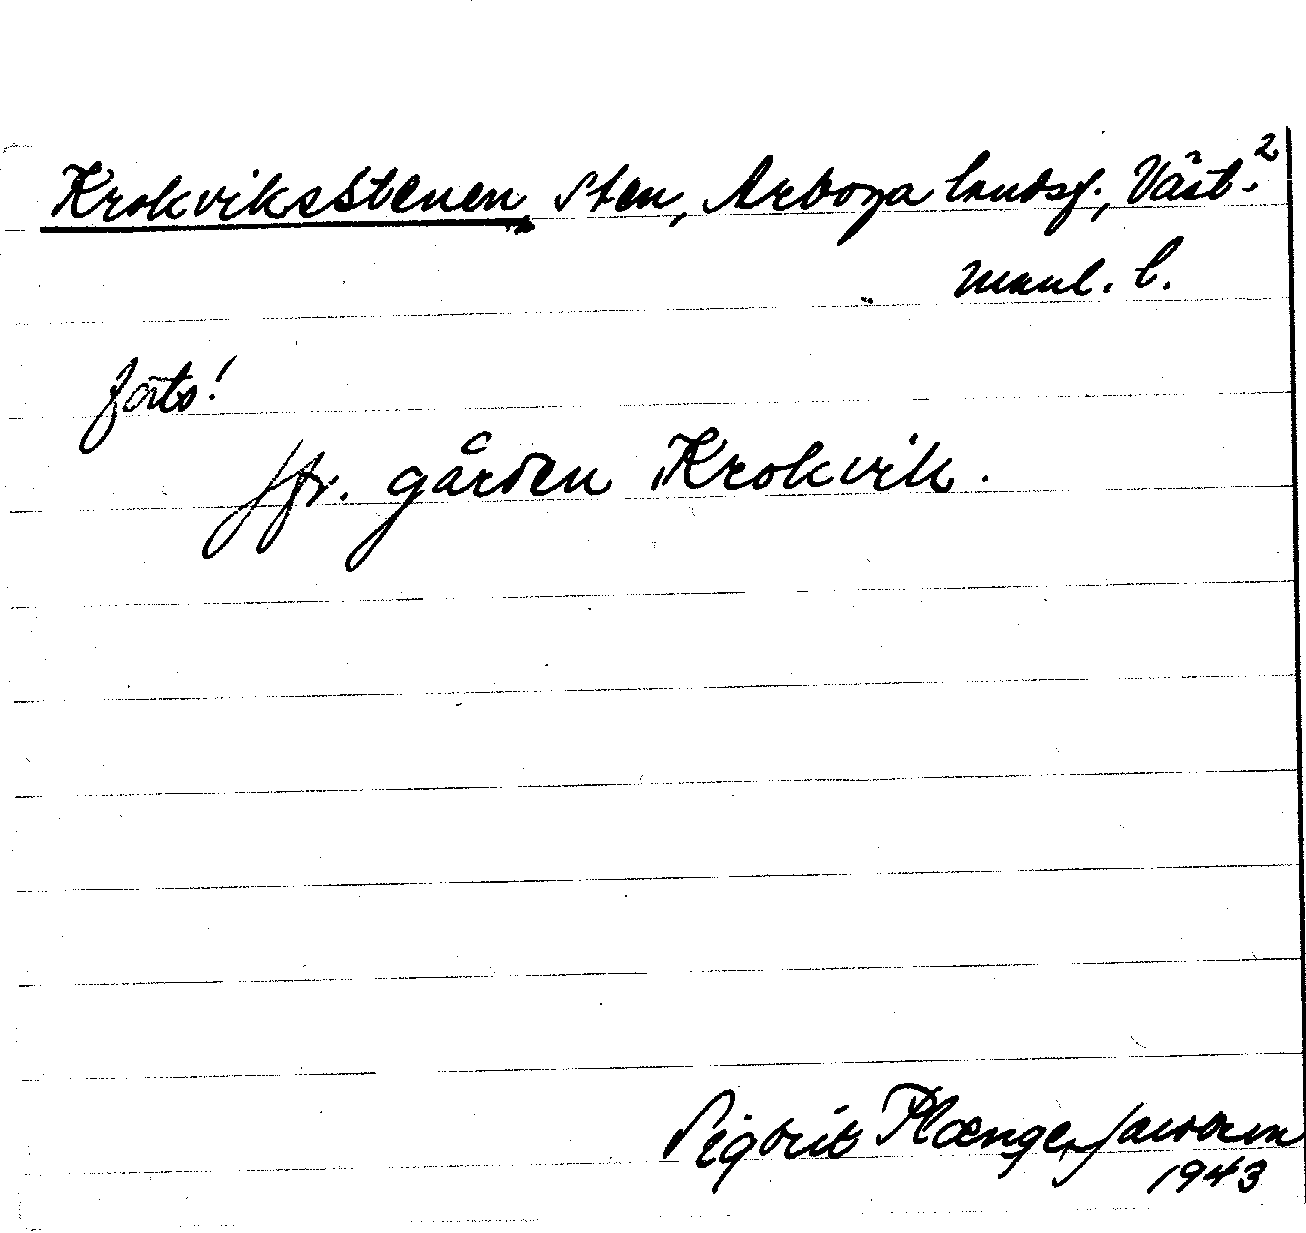 Kroksviksstenen, Sten, Arboga landsf., Väst.²
manl. l.
forts!
jfr. gården Krokvik.
Sigbrit Plænge Jacobson
1943